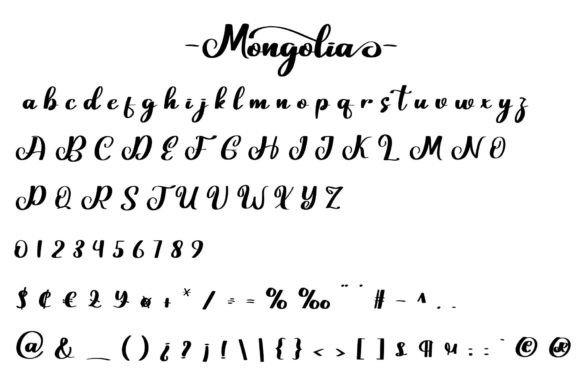 -Mongolia-
a b c d e f g h i j k l m n o p q r s t u v w x y z
A B C D E F G H I J K L M N O
P Q R S T U V W X Y Z
0 1 2 3 4 5 6 7 8 9
$ ¢ € £ ¥ ¤ + * / ÷ = % ‰ " ¨ # - ^ . .
@ & _ ( ) ¿ ? ¡ ! \ | { } < > [ ] § ¶ µ : : ` © ®